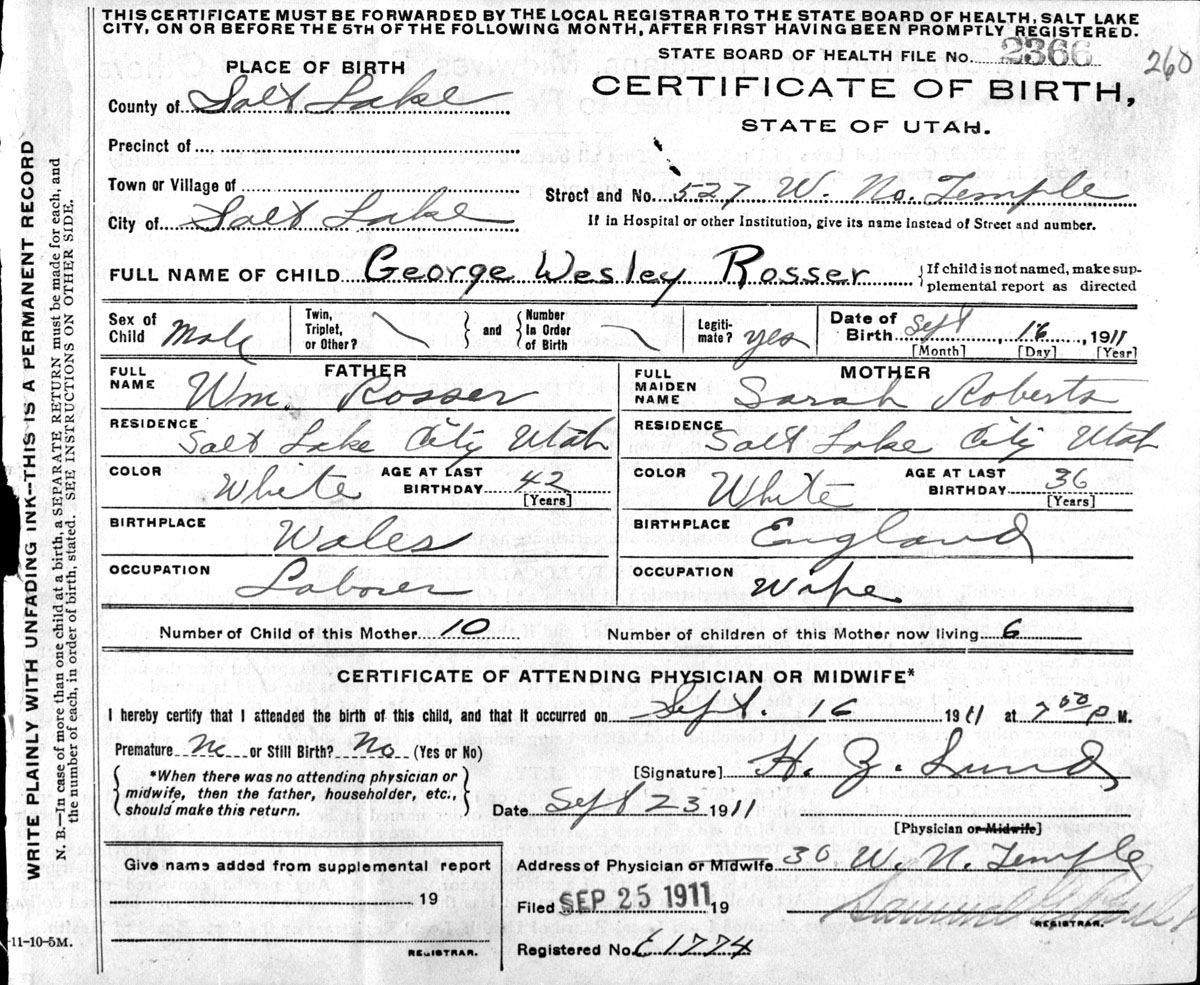 THIS CERTIFICATE MUST BE FORWARDED BY THE LOCAL REGISTRAR TO THE STATE BOARD OF HEALTH, SALT LAKE
CITY, ON OR BEFORE THE 5TH OF THE FOLLOWING MONTH, AFTER FIRST HAVING BEEN PROMPTLY REGISTERED.
STATE BOARD OF HEALTH FILE No. 2366
260
PLACE OF BIRTH
CERTIFICATE OF BIRTH,
STATE OF UTAH.
County of Salt Lake
Precinct of
Town or Village of
Street and No. 527 W. No. Temple
City of Salt Lake
If in Hospital or other Institution, give its name instead of Street and number.
FULL NAME OF CHILD George Wesley Rosser
{If child is not named, make sup-
plemental report as directed
Sex of Child Male
Twin, Triplet, or Other? } and { Number In Order of Birth
Legiti-mate? yes
Date of Birth Sept, 16, 1911
[Month] [Day] [Year]
FATHER
FULL NAME Wm. Rosser
RESIDENCE Salt Lake City Utah
COLOR White AGE AT LAST BIRTHDAY 42 [Years]
BIRTHPLACE Wales
OCCUPATION Laborer
MOTHER
FULL MAIDEN NAME Sarah Roberts
RESIDENCE Salt Lake City Utah
COLOR White AGE AT LAST BIRTHDAY 36 [Years]
BIRTHPLACE England
OCCUPATION Wife
Number of Child of this Mother 10 Number of children of this Mother now living 6
CERTIFICATE OF ATTENDING PHYSICIAN OR MIDWIFE*
I hereby certify that I attended the birth of this child, and that it occurred on Sept. 16 1911 at 7 00 P M.
Premature No or Still Birth? No (Yes or No)
{*When there was no attending physician or
midwife, then the father, householder, etc.,
should make this return.}
[Signature] H. Z. Lund
Date Sept 23 1911
[Physician or Midwife]
Give name added from supplemental report
19
REGISTRAR.
Address of Physician or Midwife 30, W. N. Temple
Filed SEP 25 1911 19
REGISTRAR.
Registered No. E1774
11-10-5M.
WRITE PLAINLY WITH UNFADING INK--THIS IS A PERMANENT RECORD
N. B.--In case of more than one child at a birth, a SEPARATE RETURN must be made for each, and
the number of each, in order of birth, stated. SEE INSTRUCTIONS ON OTHER SIDE.